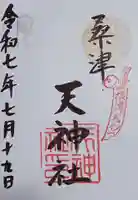 桑津
天神社
令和七年七月十九日